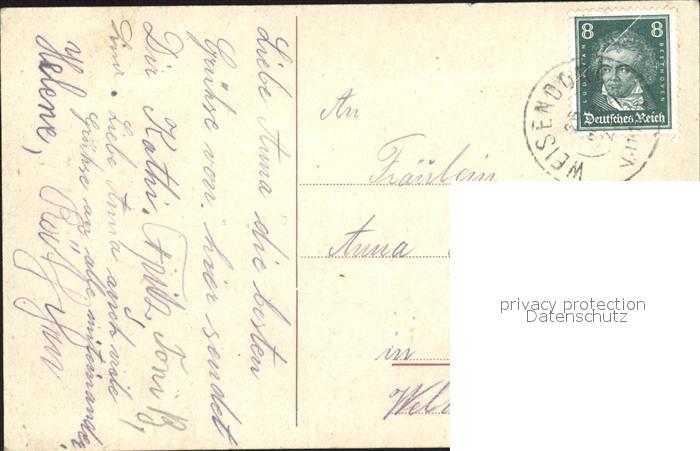 Liebe Anna die besten
Grüße von hier sendet
Dir Kathi, Fritz, Toni B,
Liebe Anna auch viele
Grüße an alle miteinander
Helene,
An
Fräulein
Anna
in
8 8
LUDWIG VAN BEETHOVEN
Deutsches Reich
WEISENDO
privacy protection
Datenschutz